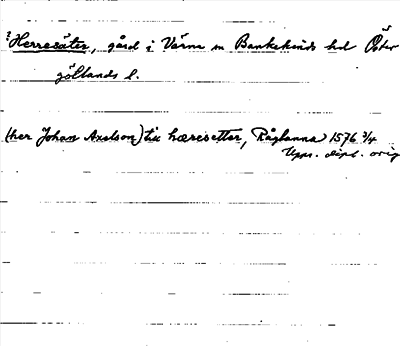 ? Herresäter, gård i Värna sn Bankekinds hd Öster
götlands l.
(her Johan Axelson) tis hæresetter, Råglanna 1576 3/4
Upps. dipl. orig